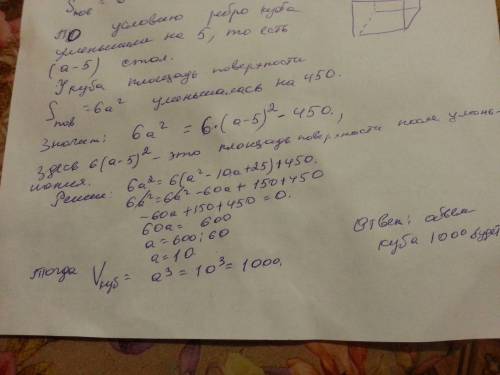 S пов =
По условию ребро куба
уменьшили на 5, то есть
(a-5) стал.
У куба площадь поверхности
S пов = 6a² уменьшалась на 450.
Значит: 6a² = 6·(a-5)² - 450,
Здесь 6(a-5)² - это площадь поверхности после умень-
шения.
Решение: 6a² = 6(a² - 10a + 25) + 450.
6a² = 6a² - 60a + 150 + 450
-60a + 150 + 450 = 0.
60a = 600
a = 600 : 60
a = 10
тогда V куб = a³ = 10³ = 1000.
Ответ: объем
куба 1000 будет